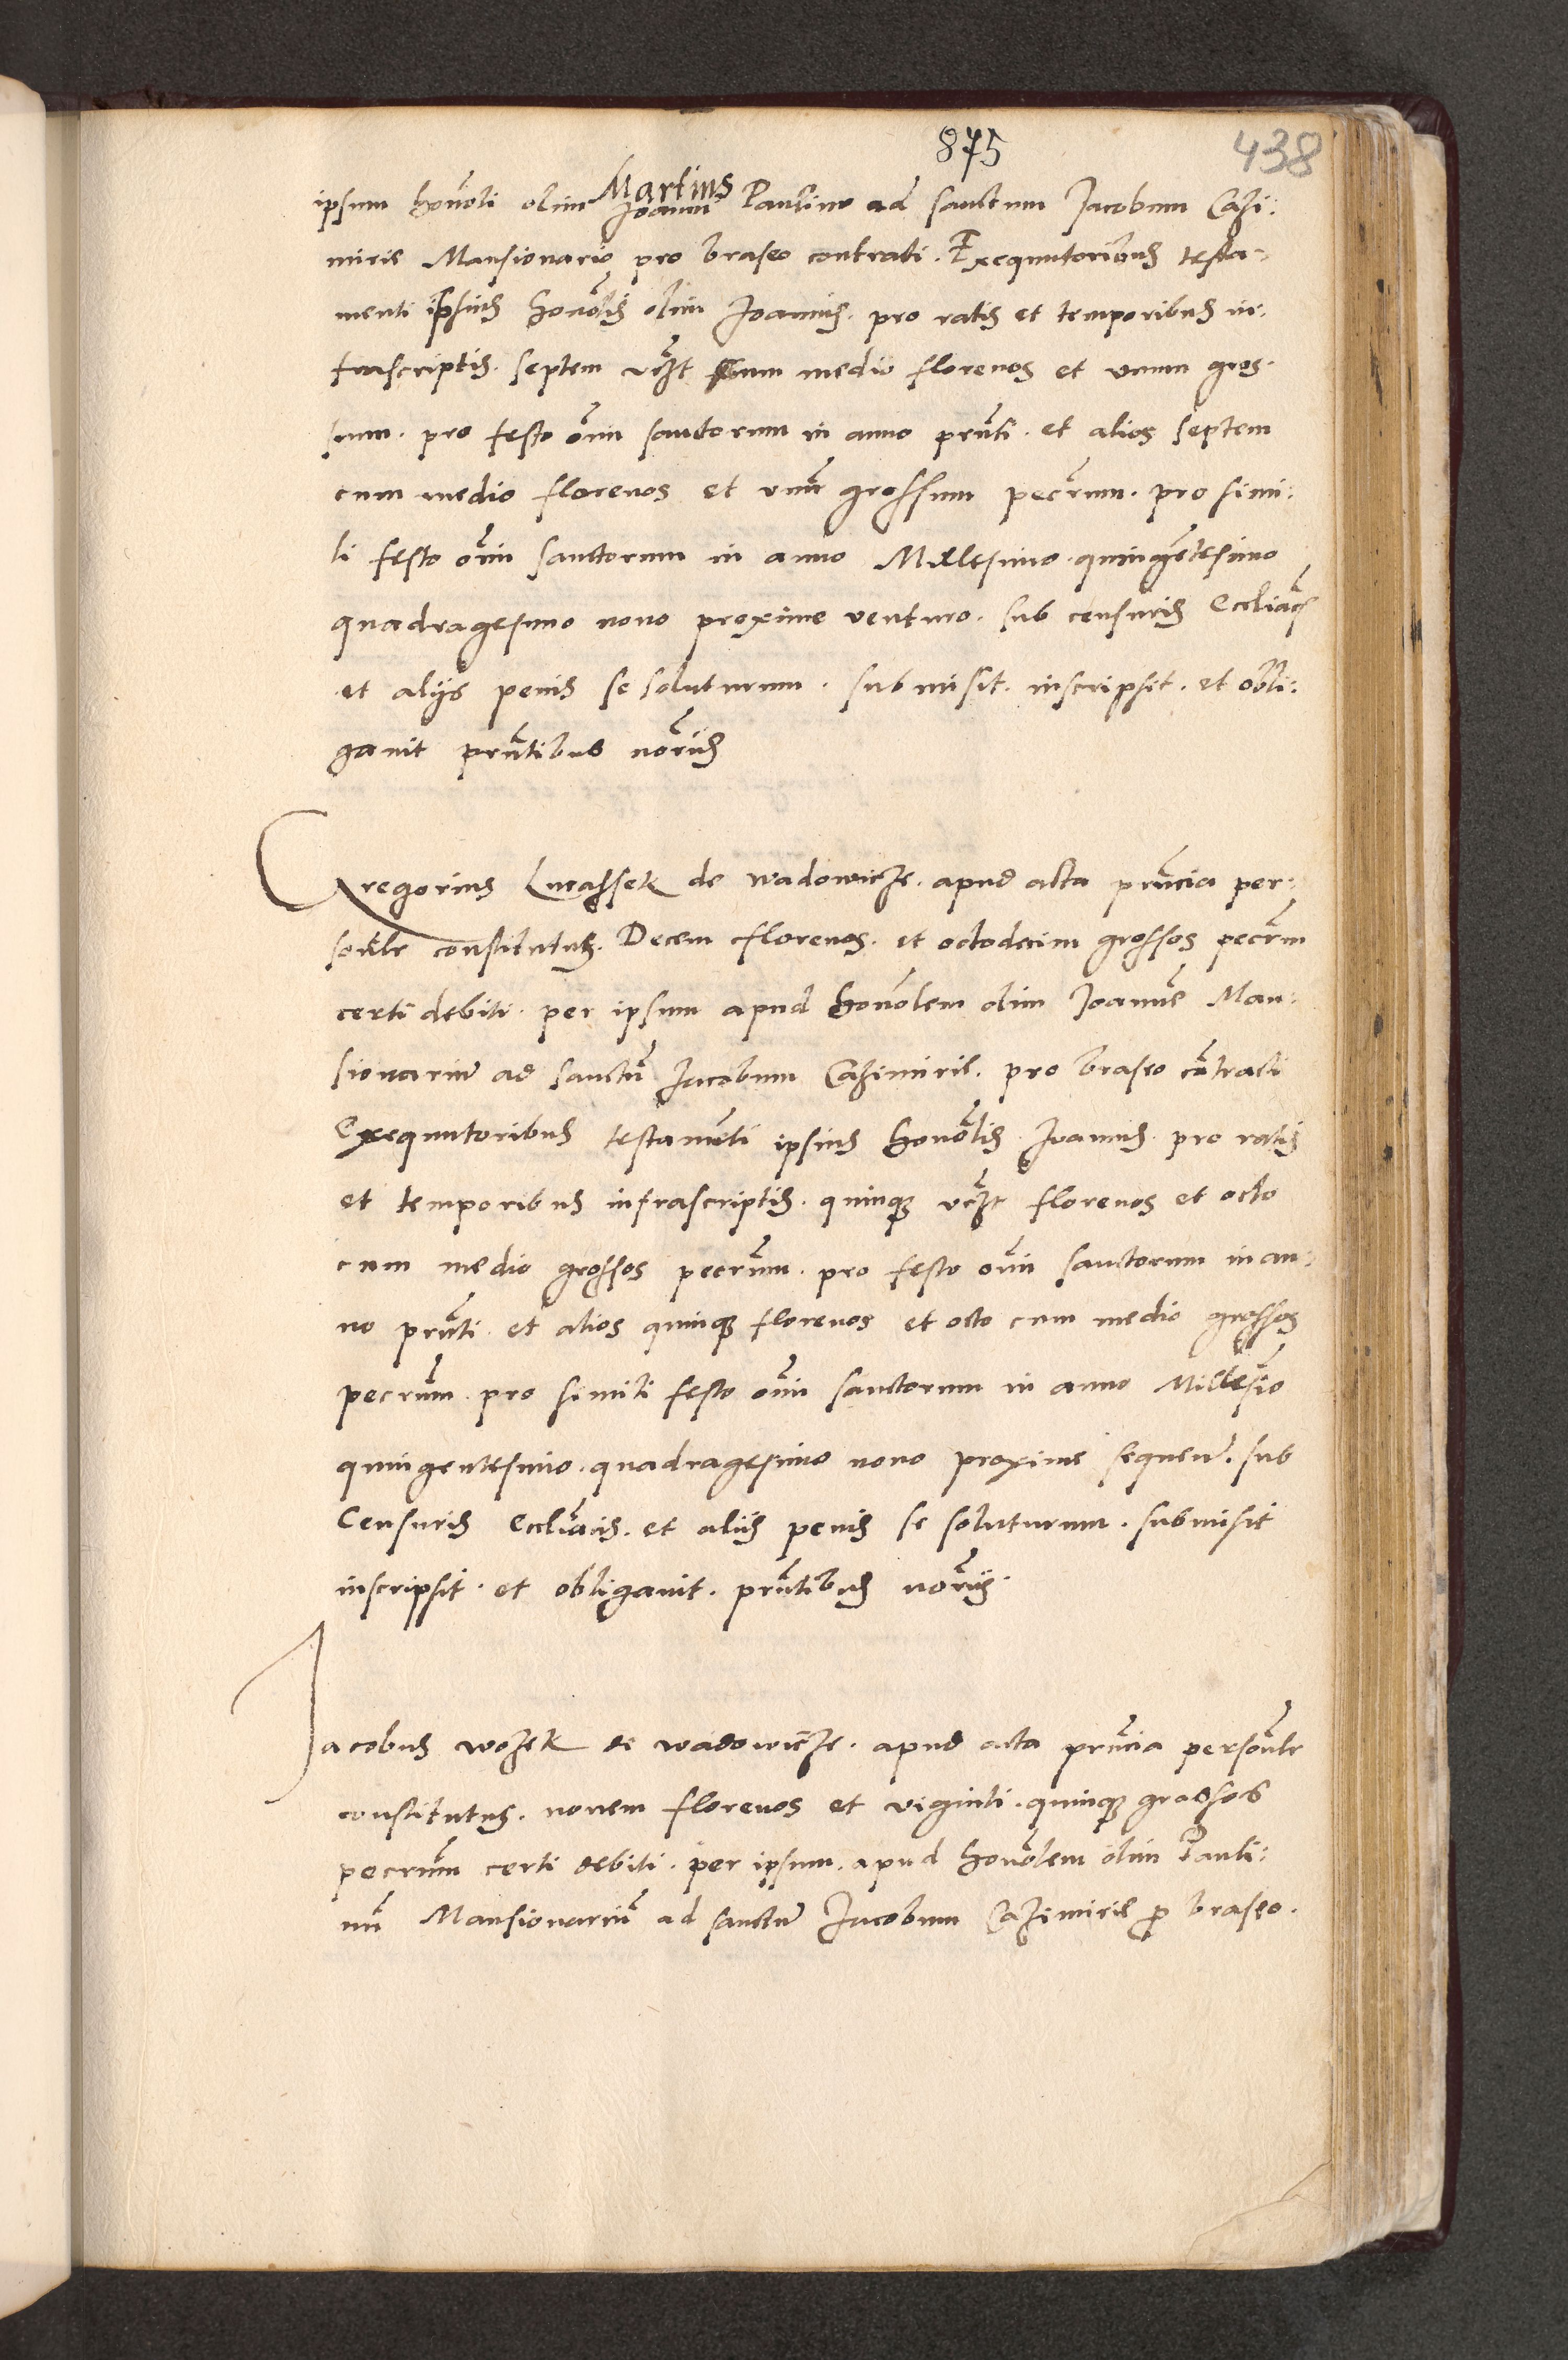 875
438
Martinus
ipsum honoli olim Joanni Paulino ad sanctum Jacobum Cazi:
mirie Mansionario pro braseo contracti. Exequutoribus testa-
menti ipsius honolis olim Joannis. pro ratis et temporibus in-
frascriptis. septem vczt cum medio florenos et vnum gros-
sum. pro festo oim sanctorum in anno pnti. et alios septem
cum medio florenos et vnu grossum pecrum. pro simi:
li festo oim sanctorum in anno Millesimo. quingetesimo
quadragesimo nono proxime venturo. sub censuris Eccliacs
et alijs penis se soluturum. submisit. inscripsit. et obli:
gauit pntibus noriis
Gregorius Lucassek de wadowicze. apud acta pncia per:
sonlr constitutus. Decem florenos. et octodecim grossos pecrm
certi debiti. per ipsum apud honolem olim Joanne Man:
sionariu ad sanctu Jacobum Cazimirie. pro braseo cotracti
Exequutoribus testameti ipsius honolis Joannis. pro ratis
et temporibus infrascriptis. quinq vczt florenos et octo
cum medio grossos pecrum. pro festo oim sanctorum in an:
no pnti. et alios quinq florenos et octo cum medio grossos
pecrum. pro simili festo oim sanctorum in anno Millesio
quingentesimo. quadragesimo nono proxime sequen. sub
Censuris Eccliacis. et aliis penis se soluturum. submisit
inscripsit. et obligauit. pntibus noriis.
Jacobus wozek de wadowicze. apud acta pncia personlr
constitutus. nouem florenos et viginti. quinq grossos
pecrum certi debiti. per ipsum. apud honolem olim Pauli:
nu Mansionariu ad sanctu Jacobum Cazimirie p braseo.